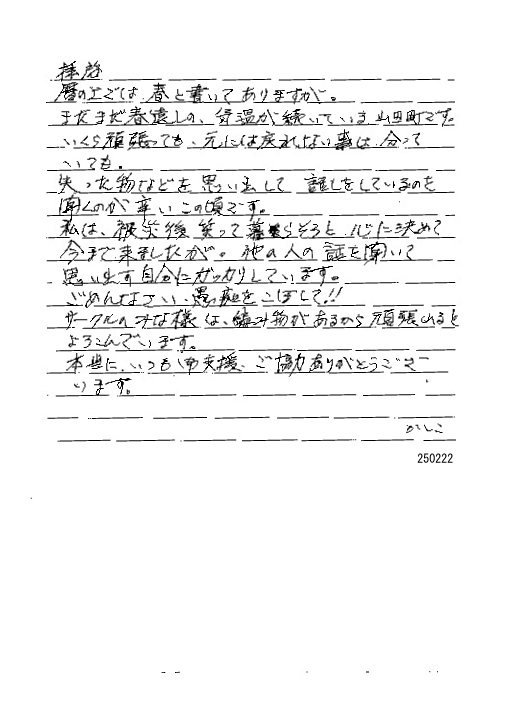 拝啓
暦の上では春と書いてありますが。
まだまだ春遠しの、気温が続いている山田町です。
いくら頑張っても、元には戻れない事は分って
いても。
失った物などを思い出して話しをしているのを
聞くのが辛いこの頃です。
私は、被災後笑って暮らそうと心に決めて
今まで来ましたが。他の人の話を聞いて
思い出す自分にガッカリしています。
ごめんなさい、愚痴をこぼして!!
サークルのみな様は、編み物があるから頑張れると
よろこんでいます。
本当に、いつも御支援、ご協力ありがとうござ
います。
かしこ
250222